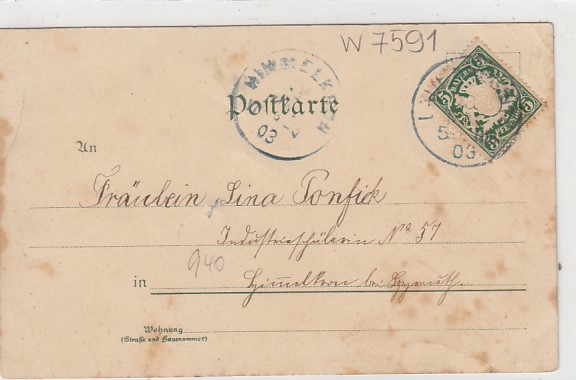 W 7591
HIMMELKRON
03
Postkarte
BAYERN
5 5
PFENNIG
5
03
An
Fräulein Lina Ponfick
Industrieschülerin No 57
940
in Himmelkron bei Bayreuth.
Wohnung
(Straße und Hausnummer)